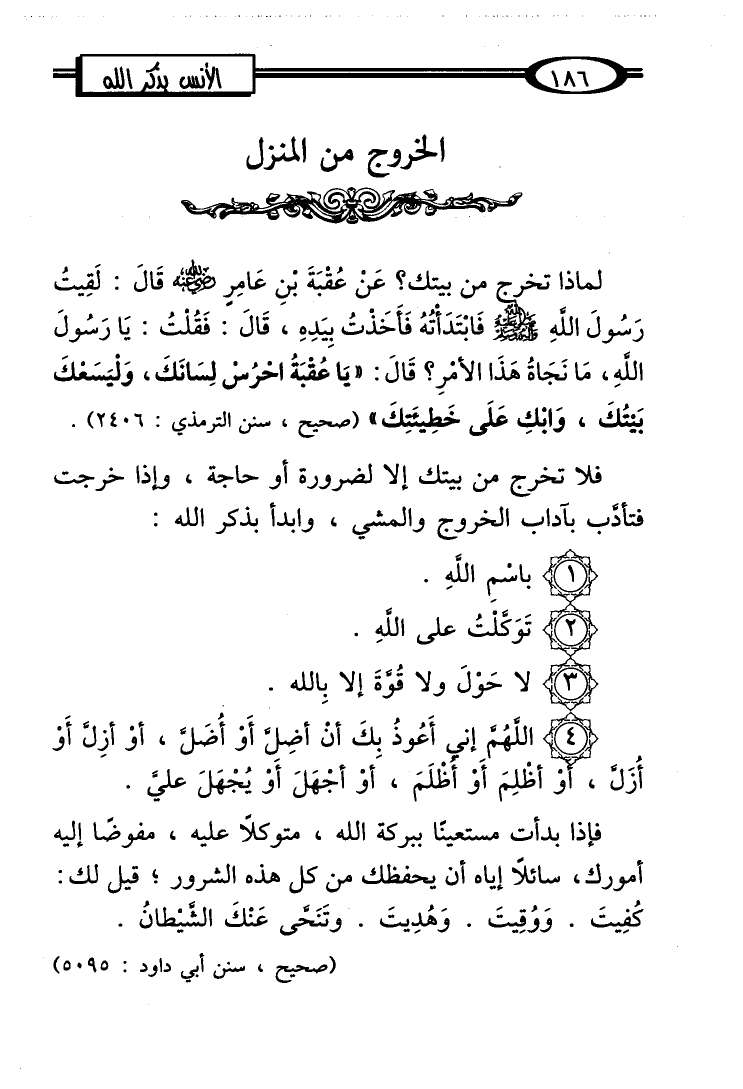 الأنس بذكر الله
١٨٦
الخروج من المنزل
لماذا تخرج من بيتك؟ عَنْ عُقْبَةَ بْنِ عَامِرٍ رضي الله عنه قَالَ : لَقِيتُ
رَسُولَ اللَّهِ ﷺ فَابْتَدَأْتُهُ فَأَخَذْتُ بِيَدِهِ ، قَالَ : فَقُلْتُ : يَا رَسُولَ
اللَّهِ، مَا نَجَاةُ هَذَا الأَمْرِ؟ قَالَ: «يَا عُقْبَةُ احْرُسْ لِسَانَكَ، وَلْيَسَعْكَ
بَيْتُكَ ، وَابْكِ عَلَى خَطِيئَتِكَ» (صحيح ، سنن الترمذي : ٢٤٠٦) .
فلا تخرج من بيتك إلا لضرورة أو حاجة ، وإذا خرجت
فتأدَّب بآداب الخروج والمشي ، وابدأ بذكر الله :
١ باسْمِ اللَّهِ .
٢ تَوَكَّلْتُ على اللَّهِ .
٣ لا حَوْلَ ولا قُوَّةَ إلا بِالله .
٤ اللَّهُمَّ إني أَعُوذُ بِكَ أنْ أضِلَّ أَوْ أُضَلَّ ، أوْ أزِلَّ أَوْ
أُزَلَّ ، أَوْ أظْلِمَ أَوْ أُظْلَمَ ، أوْ أجْهَلَ أَوْ يُجْهَلَ عليَّ .
فإذا بدأت مستعينًا ببركة الله ، متوكلًا عليه ، مفوضًا إليه
أمورك، سائلًا إياه أن يحفظك من كل هذه الشرور ؛ قيل لك:
كُفِيتَ . وَوُقِيتَ . وَهُدِيتَ . وتَنَحَّى عَنْكَ الشَّيْطانُ .
(صحيح ، سنن أبي داود : ٥٠٩٥)